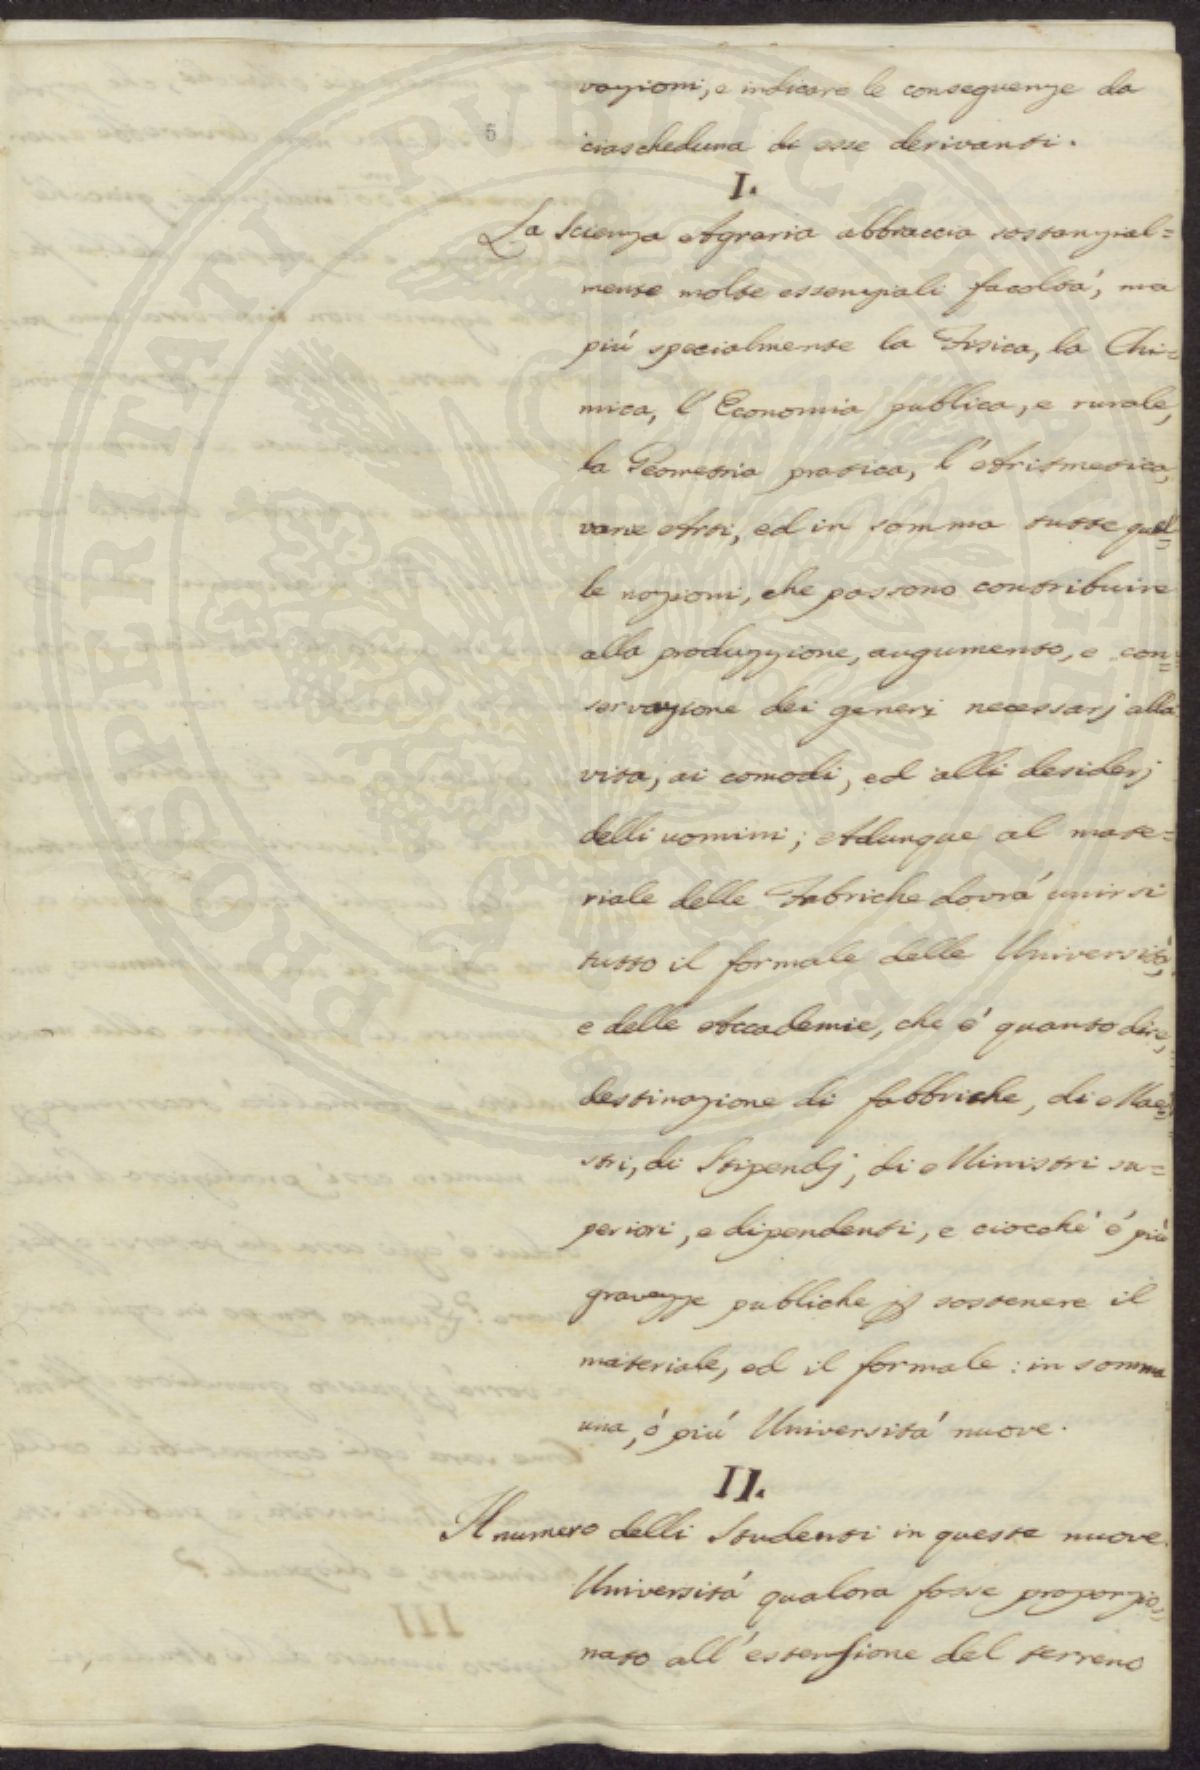 5
vazioni, e indicare le conseguenze da
ciascheduna di esse derivanti.
I.
La Scienza Agraria abbraccia sostanzial=
mente molte essenziali facoltá, ma
piú specialmente la Fisica, la Chi=
mica, l'Economia publica, e rurale,
la Geometria pratica, l'Aritmetica,
varie Arti, ed in somma tutte quel=
le nozioni, che possono contribuire
alla produzzione, augumento, e con=
servazione dei generi necessarj alla
vita, ai comodi, ed alli desiderj
delli uomini; Adunque al mate=
riale delle Fabriche dovrá unirsi
tutto il formale delle Universitá,
e delle Accademie, che é quanto dire,
destinazione di fabbriche, di Mae=
stri, di Stipendj, di Ministri su=
periori, e dipendenti, e ciocché é piú
gravezze publiche sostenere il
materiale, ed il formale: in somma
una, ó piú Universitá nuove.
II.
Il numero delli Studenti in queste nuove
Universitá qualora fosse proporzio=
nato all'estensione del terreno
PROSPERITATI PUBLICAE AUGENDAE